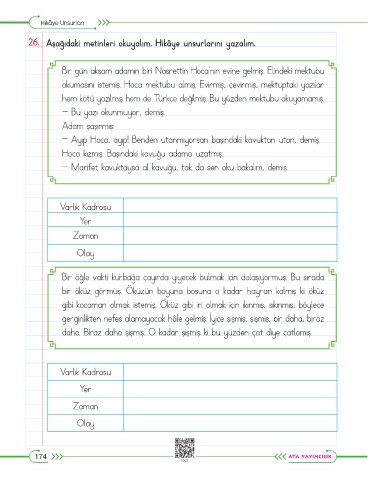 Hikâye Unsurları
26. Aşağıdaki metinleri okuyalım. Hikâye unsurlarını yazalım.
Bir gün akşam adamın biri Nasrettin Hoca'nın evine gelmiş. Elindeki mektubu
okumasını istemiş. Hoca mektubu almış. Evirmiş, çevirmiş, mektuptaki yazılar
hem kötü yazılmış hem de Türkçe değilmiş. Bu yüzden mektubu okuyamamış.
– Bu yazı okunmuyor, demiş.
Adam şaşırmış:
– Ayıp Hoca, ayıp! Benden utanmıyorsan başındaki kavuktan utan, demiş.
Hoca kızmış. Başındaki kavuğu adama uzatmış:
– Marifet kavuktaysa al kavuğu, tak da sen oku bakalım, demiş.
Varlık Kadrosu
Yer
Zaman
Olay
Bir öğle vakti kurbağa çayırda yiyecek bulmak için dolaşıyormuş. Bu sırada
bir öküz görmüş. Öküzün boyuna bosuna o kadar hayran kalmış ki öküz
gibi kocaman olmak istemiş. Öküz gibi iri olmak için ıkınmış, sıkınmış; böylece
gerginlikten nefes alamayacak hâle gelmiş. İyice şişmiş, şişmiş, bir daha, biraz
daha. Biraz daha şişmiş. O kadar şişmiş ki bu yüzden çat diye çatlamış.
Varlık Kadrosu
Yer
Zaman
Olay
174
ATA YAYINCILIK